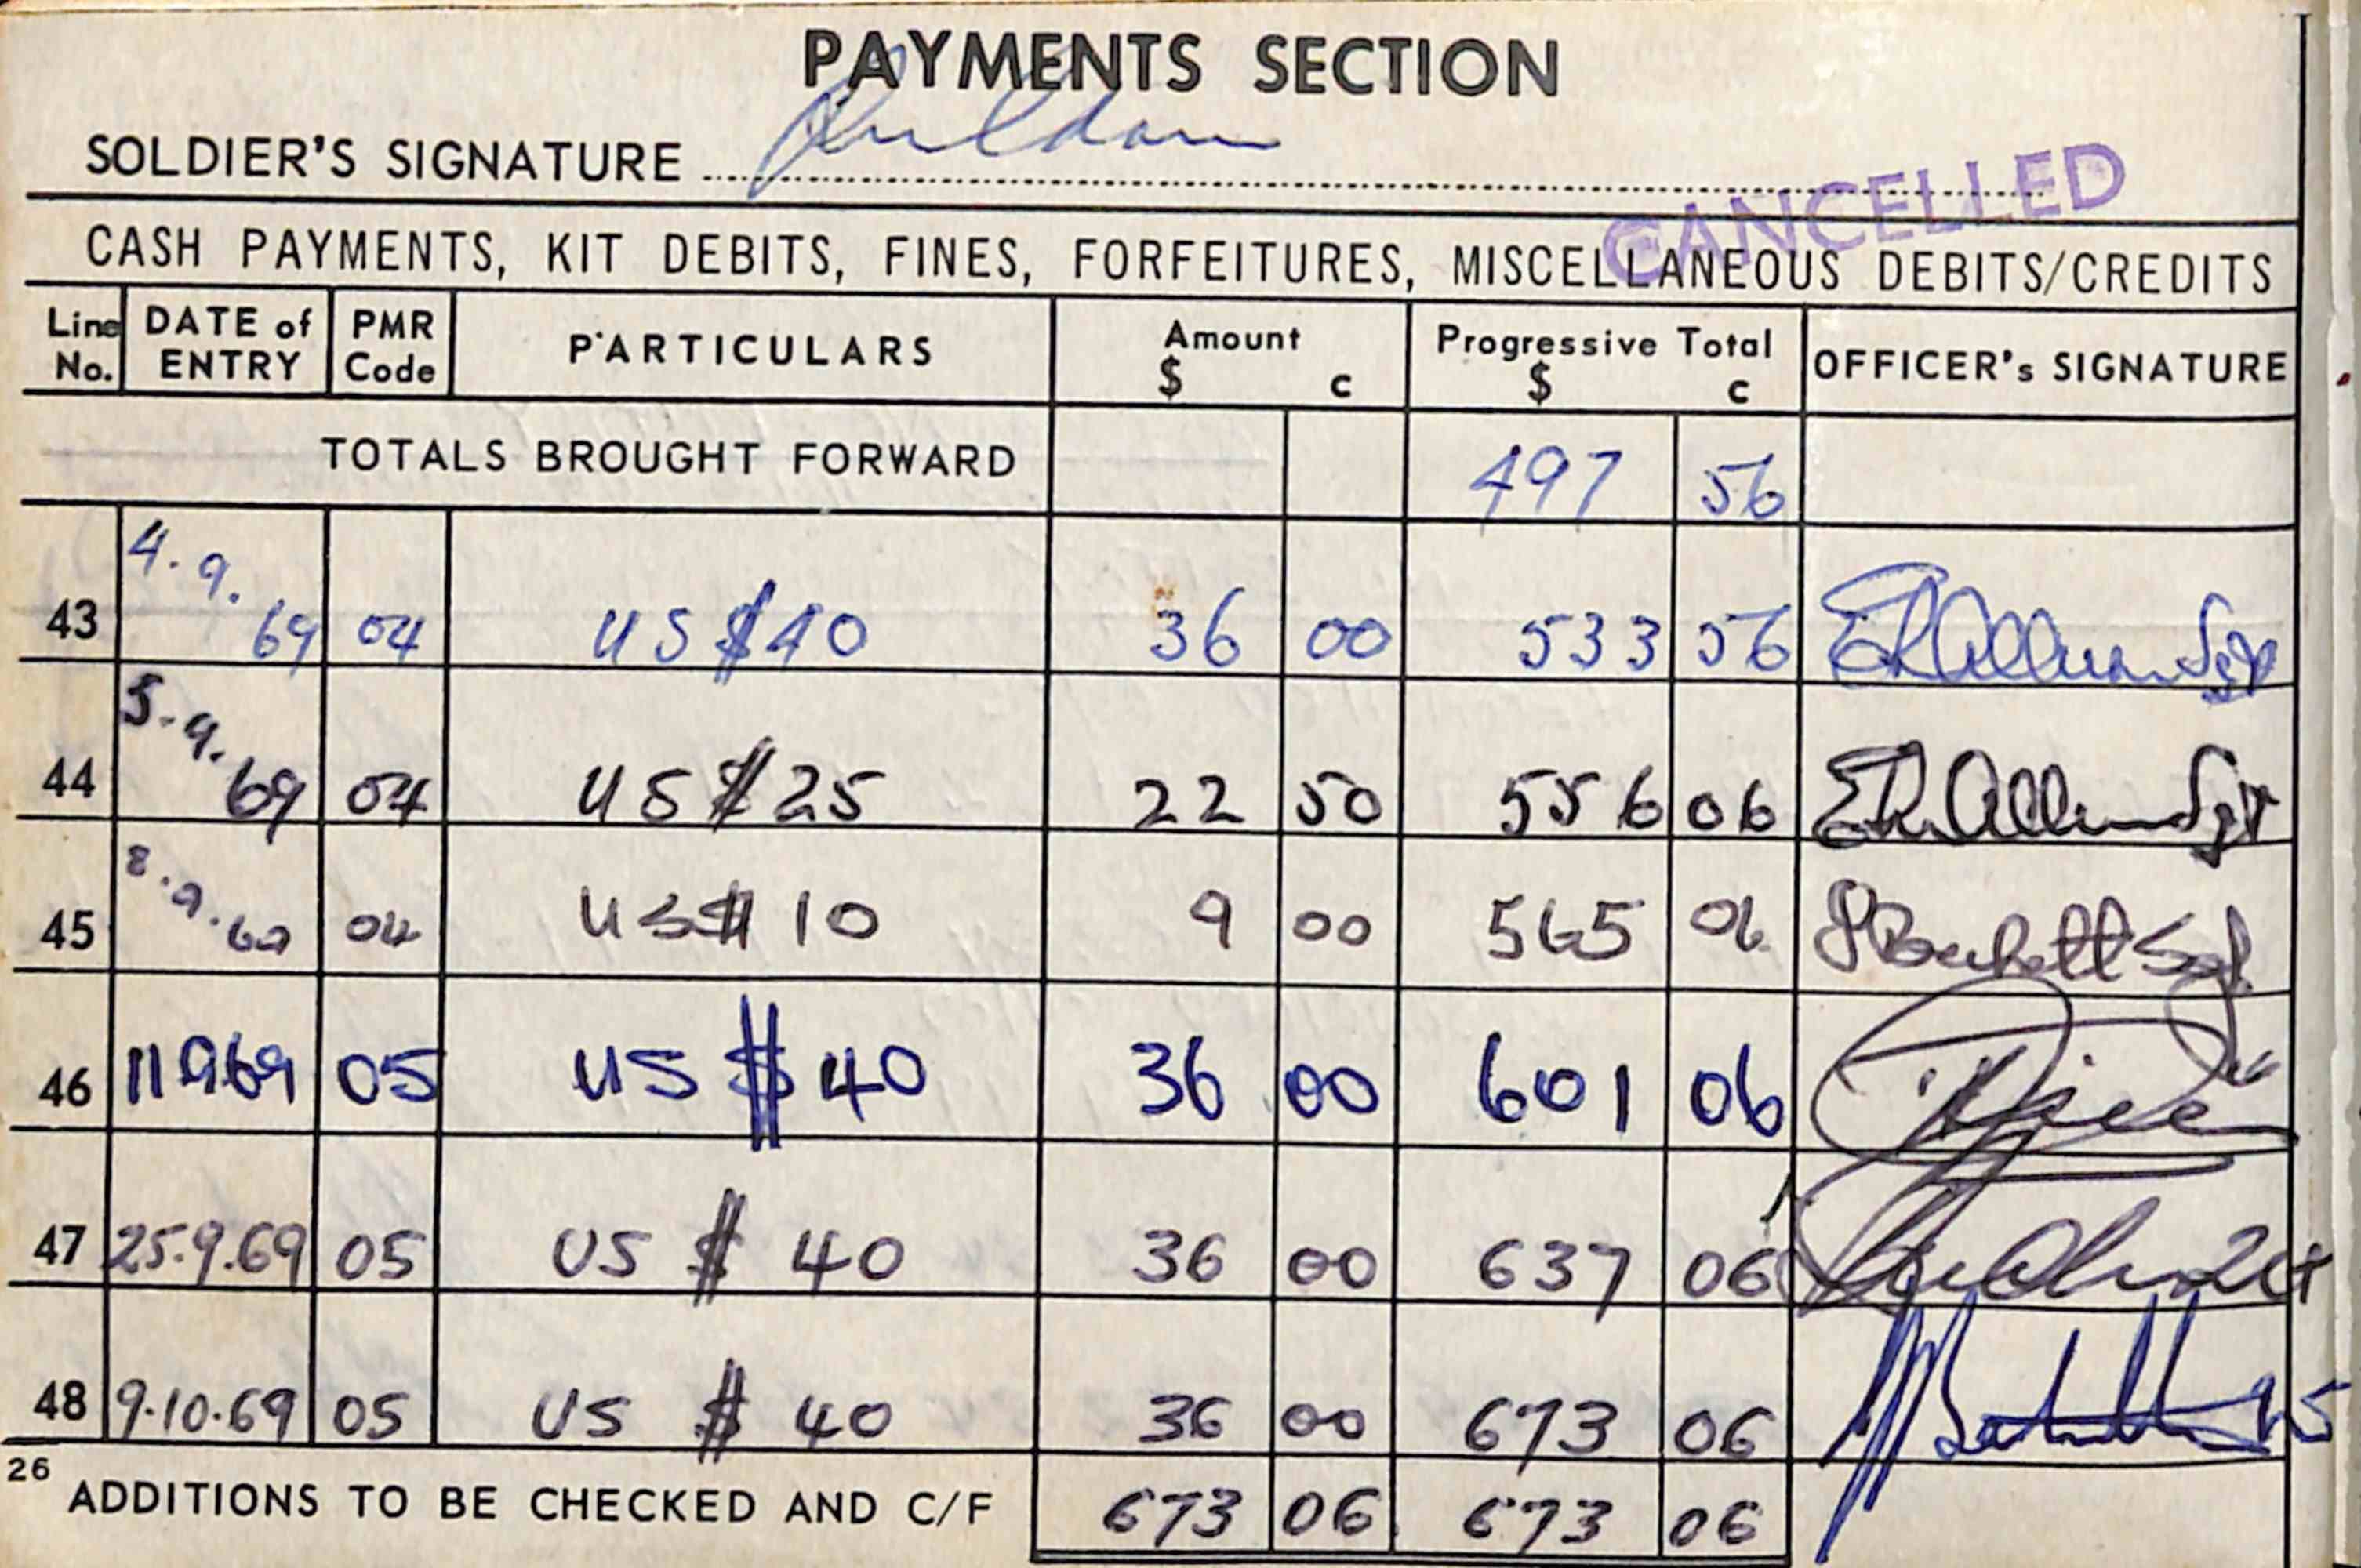 PAYMENTS SECTION
SOLDIER'S SIGNATURE
CANCELLED
CASH PAYMENTS, KIT DEBITS, FINES, FORFEITURES, MISCELLANEOUS DEBITS/CREDITS
Line No. DATE of ENTRY PMR Code PARTICULARS Amount $ c Progressive Total $ c OFFICER's SIGNATURE
TOTALS BROUGHT FORWARD 497 56
43 4.9.69 04 US $40 36 00 533 56 Sgt
44 5.9.69 04 US $25 22 50 556 06 Sgt
45 8.9.69 04 US$ 10 9 00 565 06 Sgt
46 11 9 69 05 US $ 40 36 00 601 06
47 25.9.69 05 US $ 40 36 00 637 06
48 9.10.69 05 US $ 40 36 00 673 06
26 ADDITIONS TO BE CHECKED AND C/F 673 06 673 06